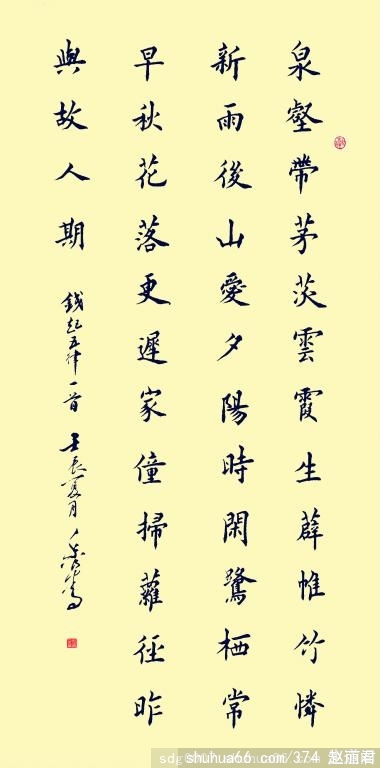 泉壑帶茅茨雲霞生薜帷竹憐
新雨後山愛夕陽時閑鷺栖常
早秋花落更遲家僮掃蘿徑昨
與故人期
錢起五律一首 壬辰夏月
shuhua66.com/374